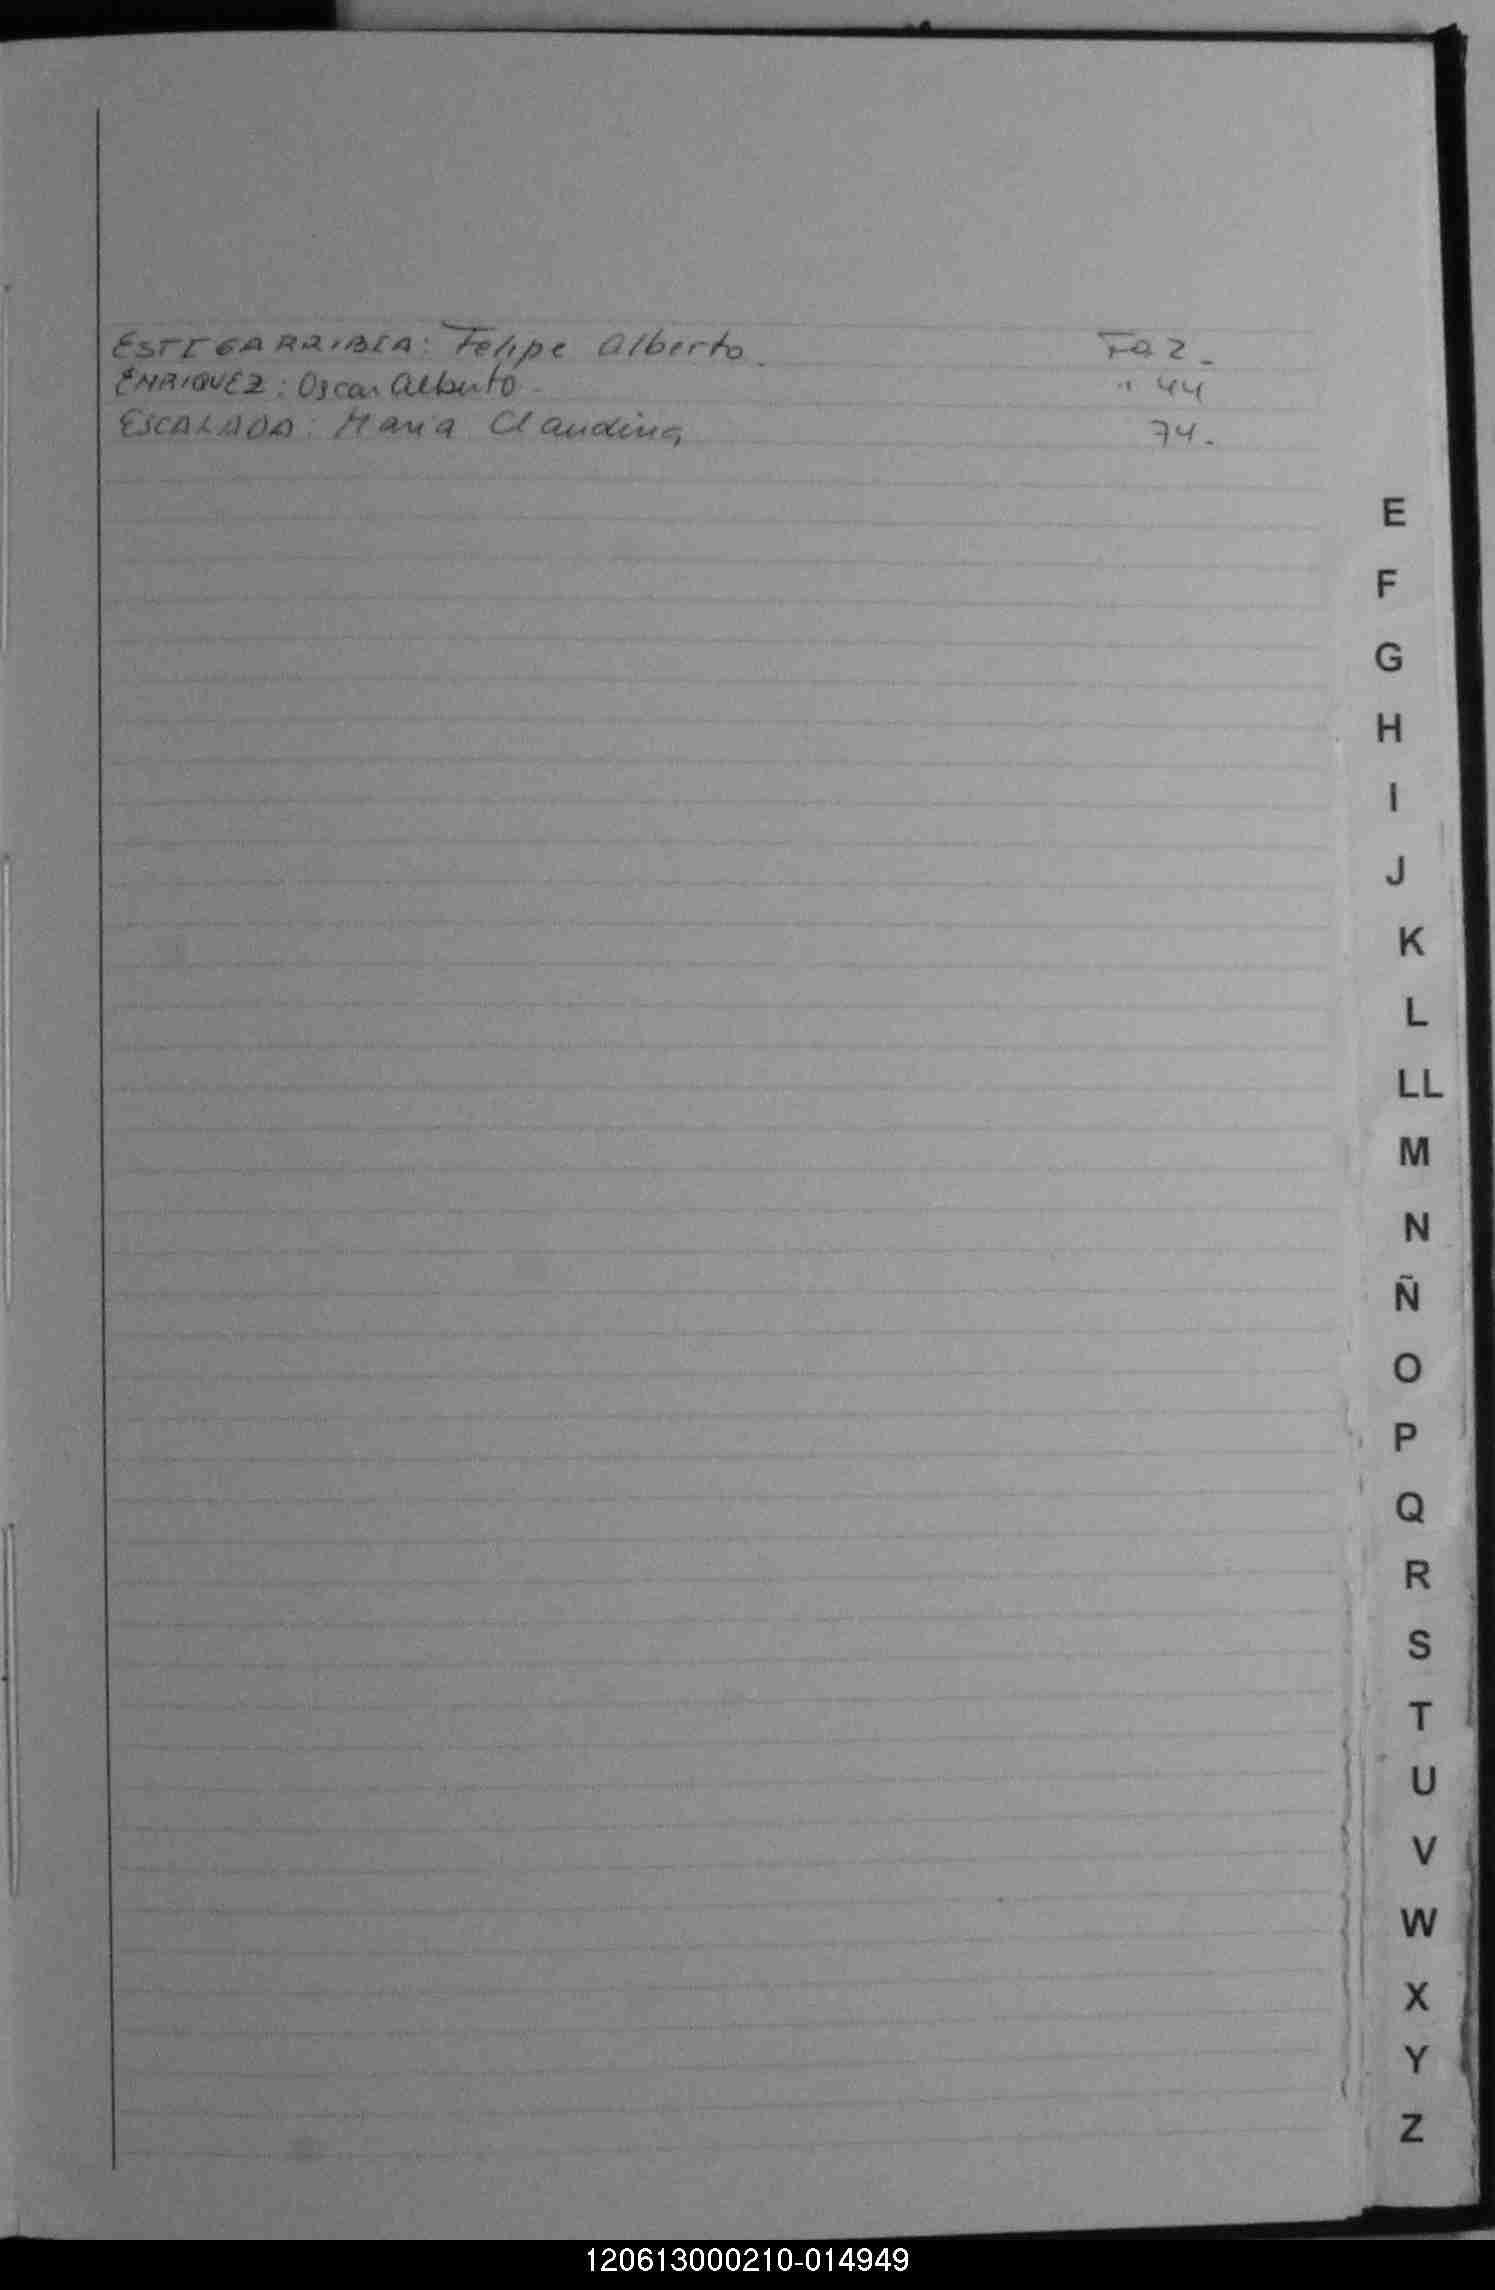 ESTIGARRIBIA: Felipe Alberto.
Fo 2.
ENRIQUEZ: Oscar Alberto.
" 44
ESCALADA: Maria Claudina
74.
E
F
G
H
I
J
K
L
LL
M
N
Ñ
O
P
Q
R
S
T
U
V
W
X
Y
Z
120613000210-014949